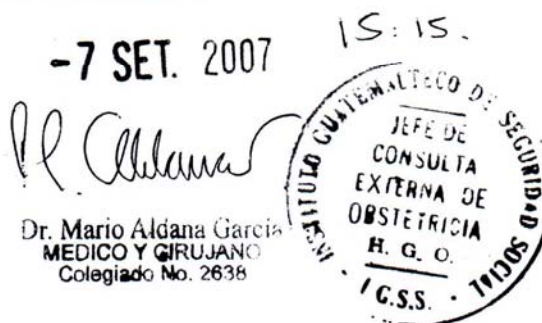 -7 SET. 2007
15:15.
Dr. Mario Aldana García
MEDICO Y CIRUJANO
Colegiado No. 2638
INSTITUTO GUATEMALTECO DE SEGURIDAD SOCIAL
JEFE DE
CONSULTA
EXTERNA DE
OBSTETRICIA
H. G. O.
I.G.S.S.